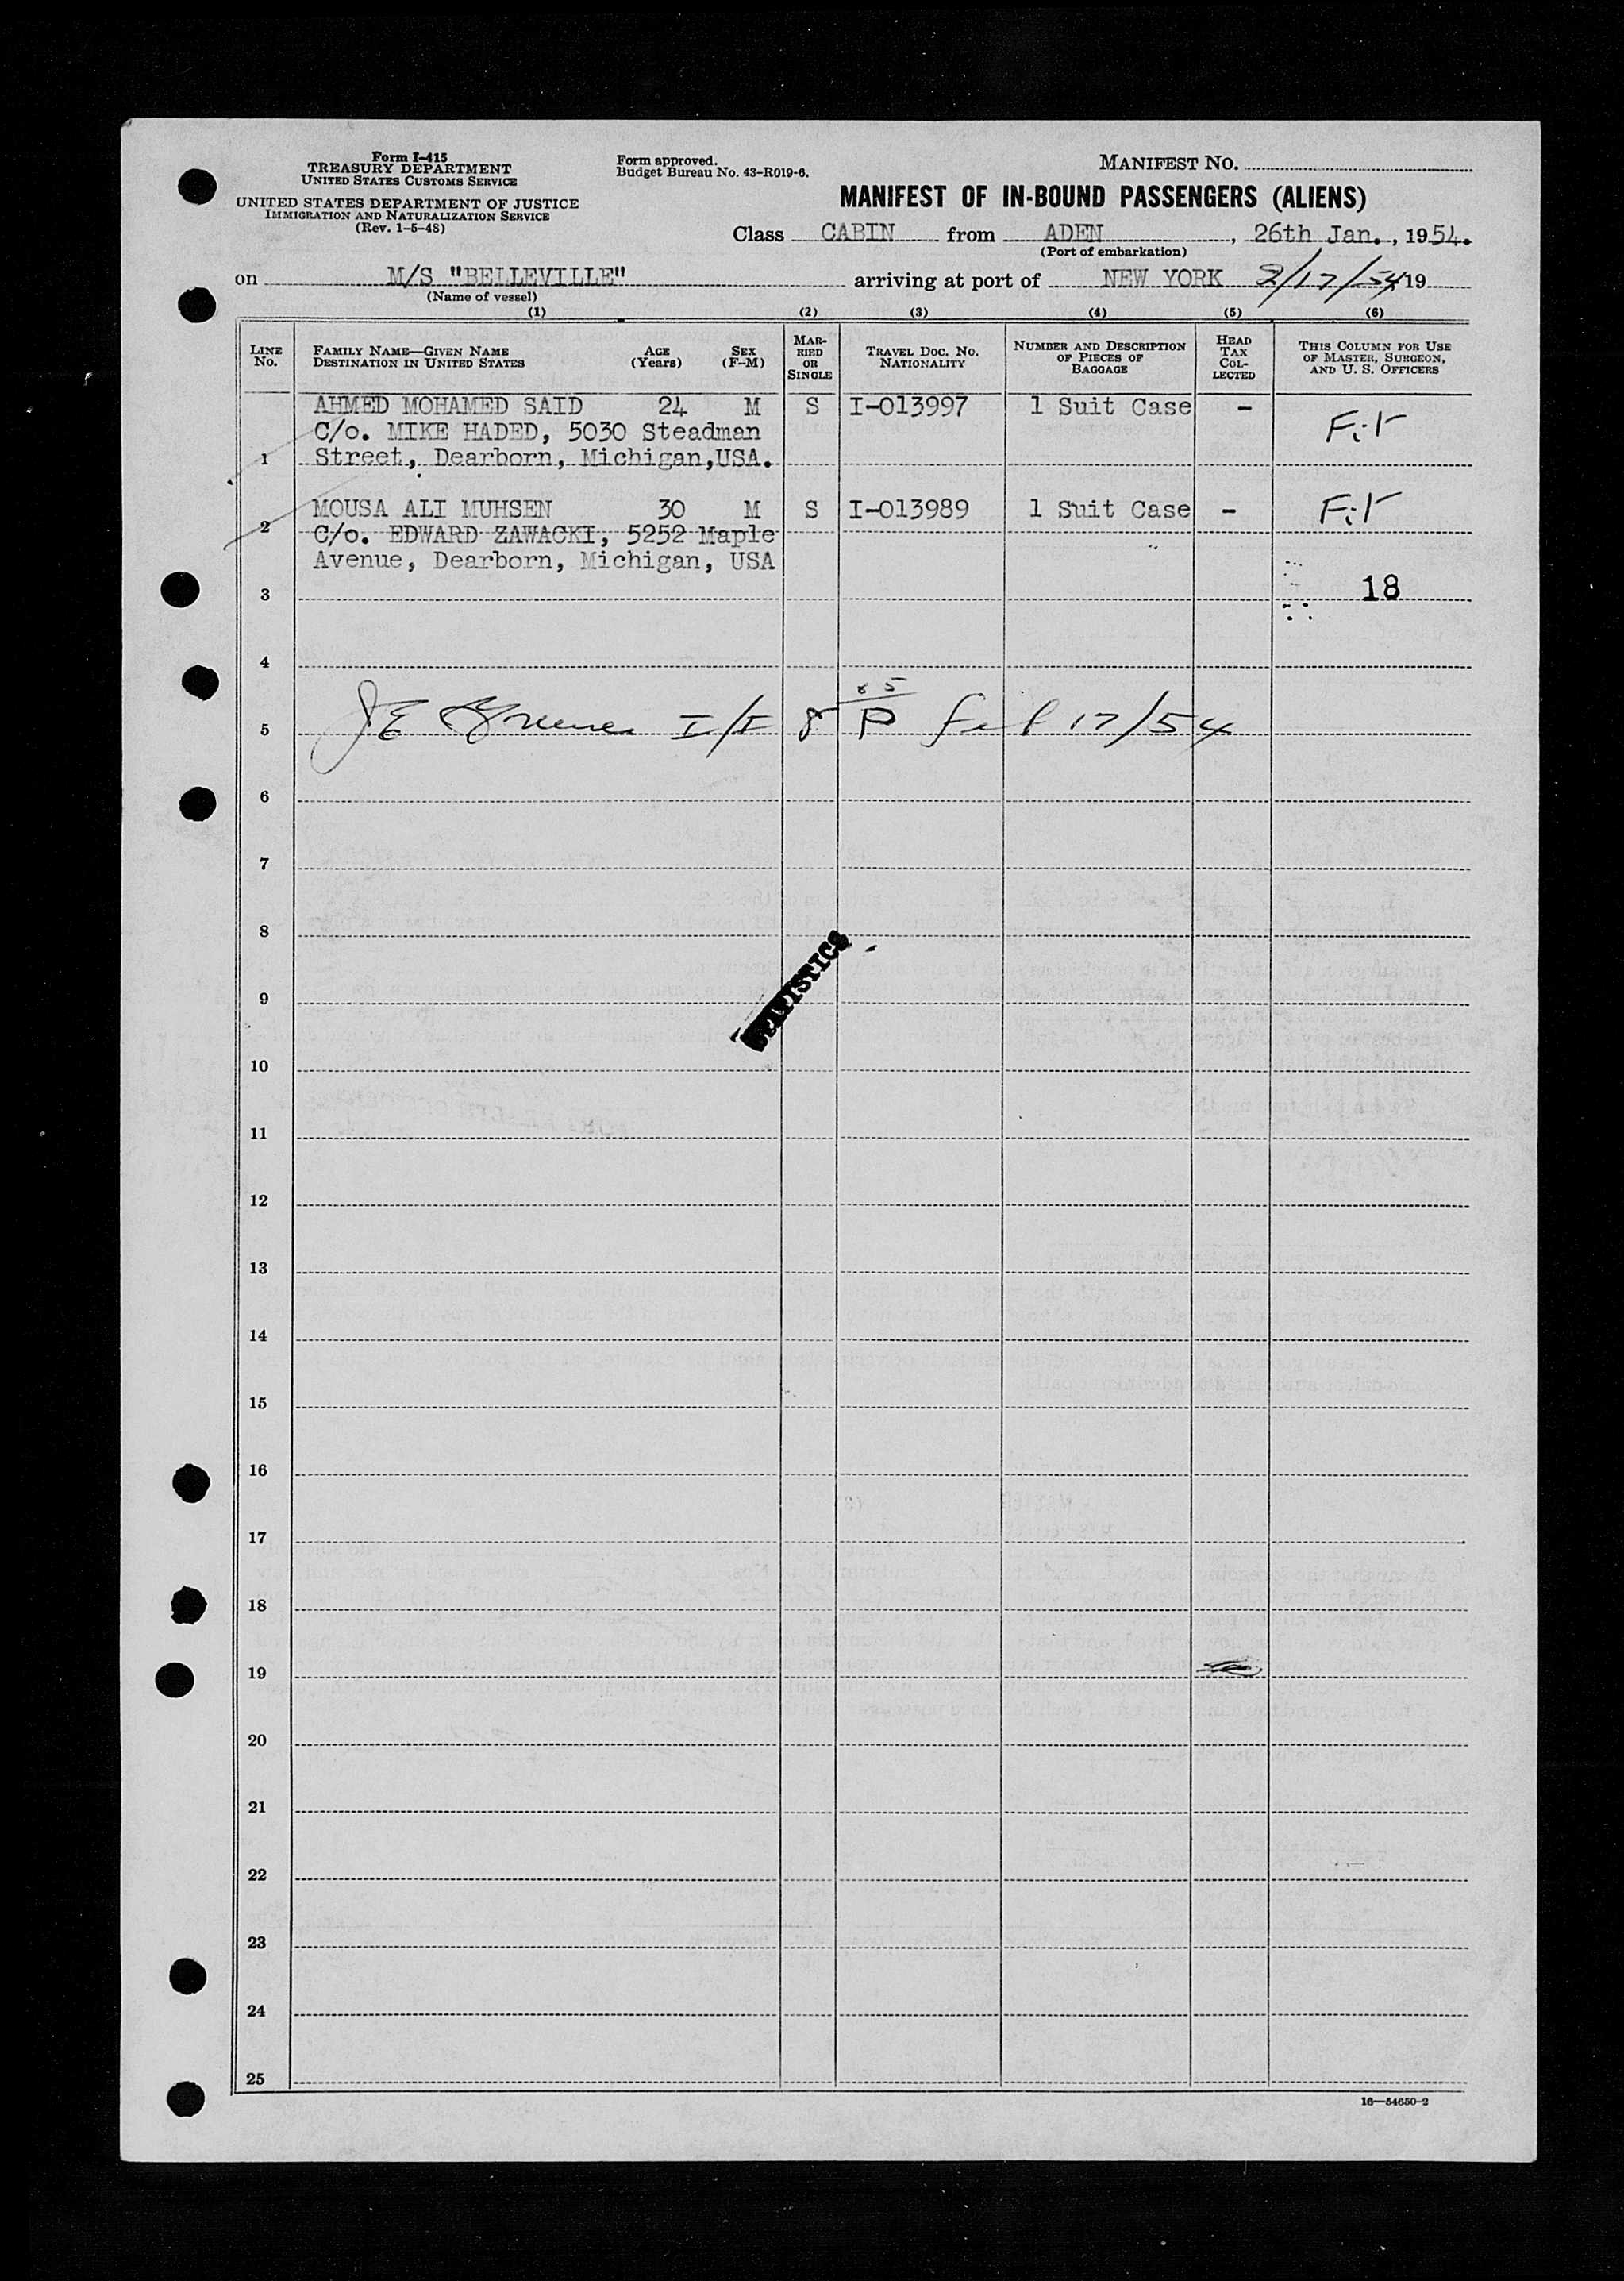 Form I-415
TREASURY DEPARTMENT
UNITED STATES CUSTOMS SERVICE
UNITED STATES DEPARTMENT OF JUSTICE
IMMIGRATION AND NATURALIZATION SERVICE
(Rev. 1-5-48)
Form approved.
Budget Bureau No. 43-R019-6.
MANIFEST NO.
MANIFEST OF IN-BOUND PASSENGERS (ALIENS)
Class CABIN from ADEN, 26th Jan., 1954.
(Port of embarkation)
on M/S "BELLEVILLE" arriving at port of NEW YORK 2/17/54, 19
(Name of vessel)
(1) (2) (3) (4) (5) (6)
LINE No.
FAMILY NAME—GIVEN NAME
DESTINATION IN UNITED STATES
AGE (Years)
SEX (F-M)
MARRIED OR SINGLE
TRAVEL DOC. NO.
NATIONALITY
NUMBER AND DESCRIPTION OF PIECES OF BAGGAGE
HEAD TAX COLLECTED
THIS COLUMN FOR USE OF MASTER, SURGEON, AND U. S. OFFICERS
AHMED MOHAMED SAID 24 M S I-013997 1 Suit Case - Fit
C/o. MIKE HADED, 5030 Steadman
1 Street, Dearborn, Michigan,USA.
MOUSA ALI MUHSEN 30 M S I-013989 1 Suit Case - Fit
2 C/o. EDWARD ZAWACKI, 5252 Maple
Avenue, Dearborn, Michigan, USA
3 18
4
5 I/I 8 P Feb 17/54
6
7
8
STATISTICS
9
10
11
12
13
14
15
16
17
18
19
20
21
22
23
24
25
16—54650-2